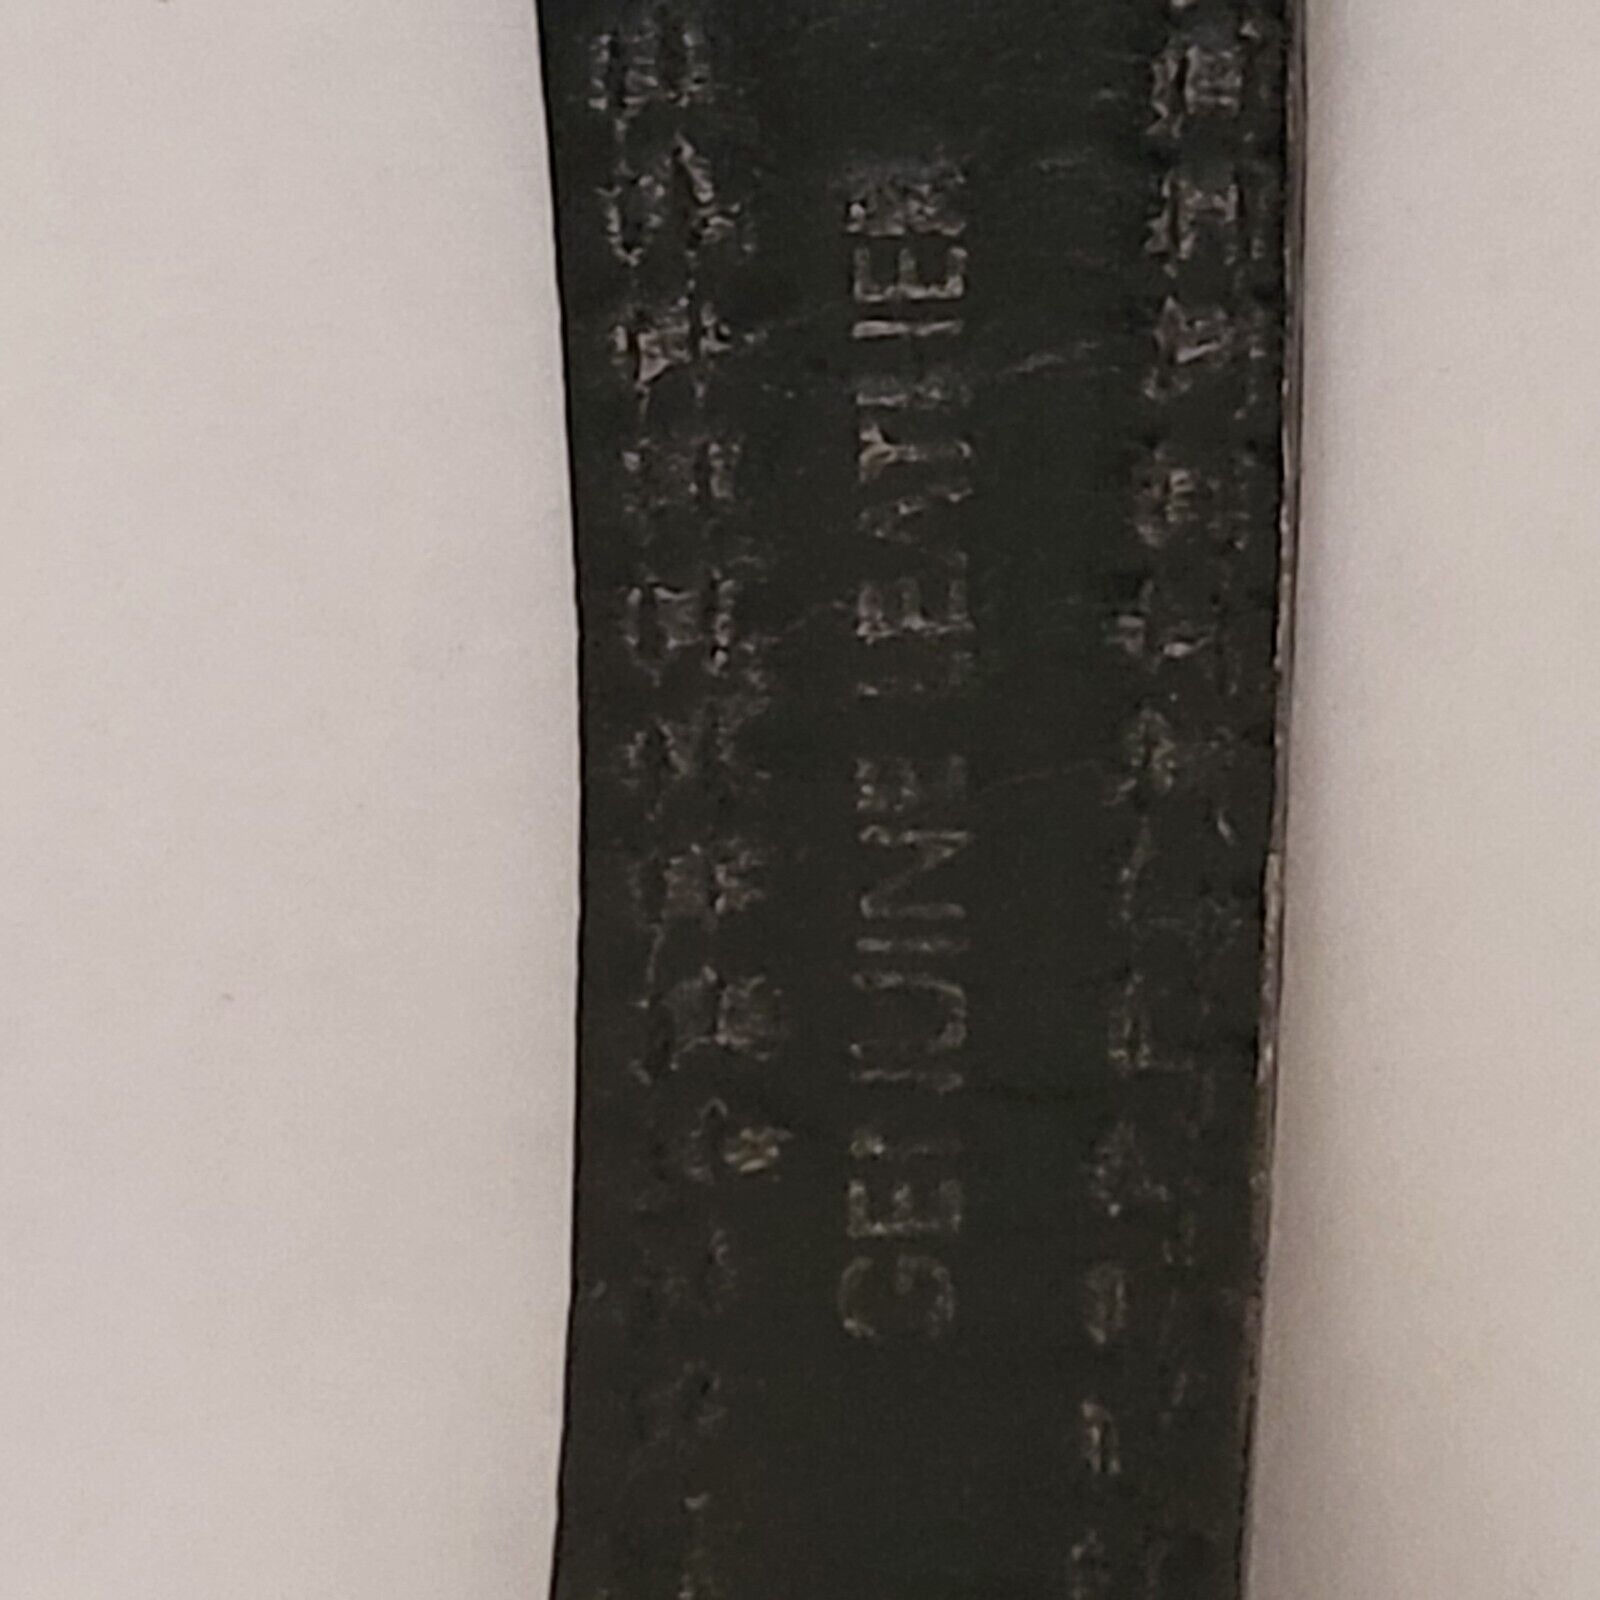 GENUINE LEATHER